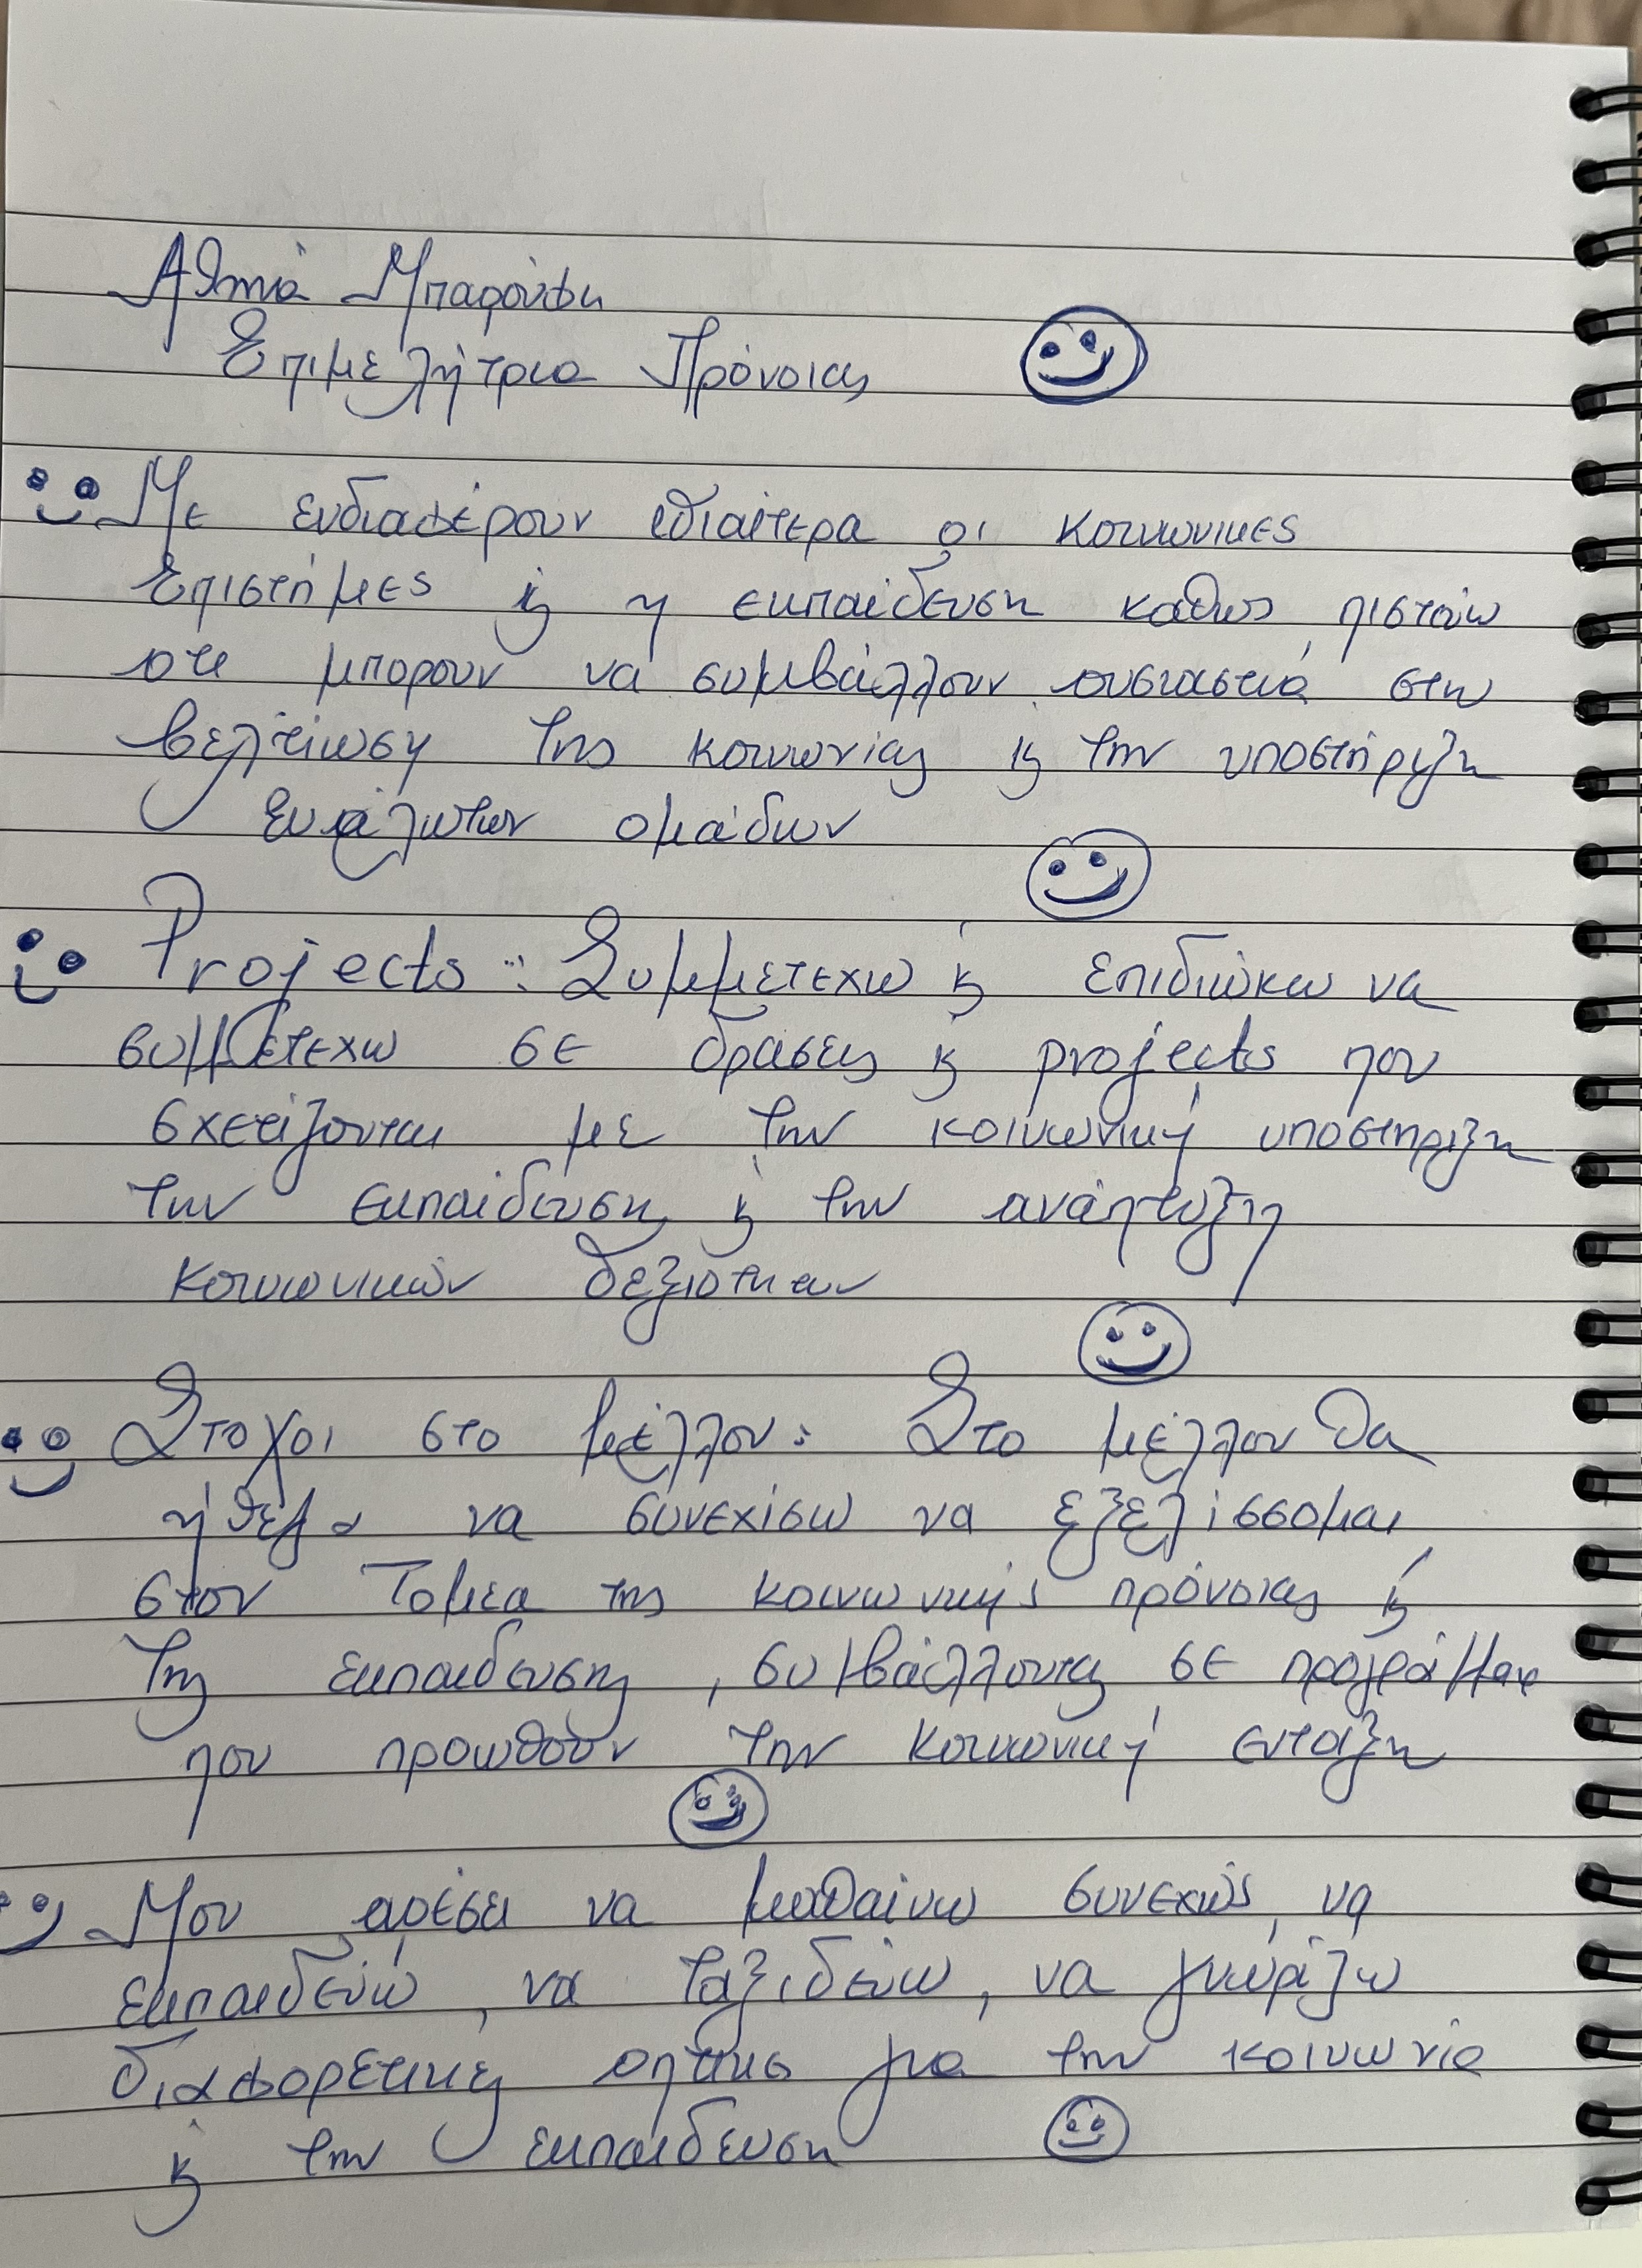 Αθηνά
Επιμελήτρια Πρόνοιας
Με ενδιαφέρουν ιδιαίτερα οι κοινωνικες
Επιστήμες κ η εκπαίδευση καθως πιστεύω
οτι μπορουν να συμβάλλουν ουσιαστικά στην
βελτίωση της κοινωνίας κ την υποστήριξη
ευάλωτων ομάδων
Projects : Συμμετεχω κ επιδιώκω να
συμμετεχω σε δρασεις κ projects που
σχετίζονται με την κοινωνική υποστηριξη
την εκπαίδευση κ την ανάπτυξη
κοινωνικών δεξιοτητων
Στοχοι στο μέλλον: Στο μέλλον θα
ήθελα να συνεχίσω να εξελίσσομαι
στον Τομεα της κοινωνικής πρόνοιας κ
της εκπαιδευσης, συμβάλλοντας σε προγράμματα
που προωθούν την κοινωνική ενταξη
Μου αρέσει να μαθαίνω συνεχώς, να
εκπαιδεύω, να ταξιδεύω, να γνωρίζω
διαφορετικές οπτικες για την κοινωνία
κ την εκπαιδευση